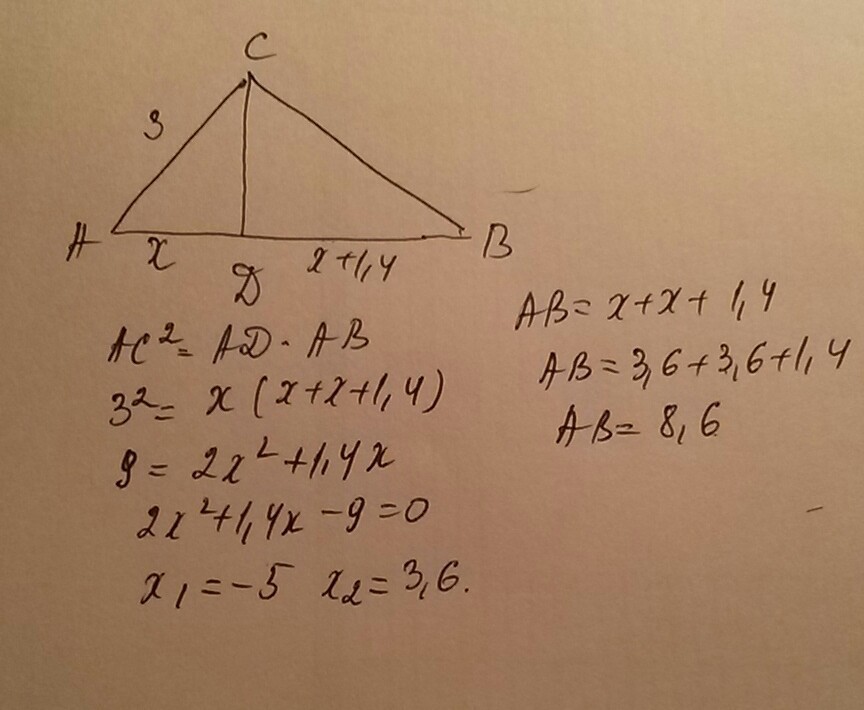 C
3
A
x
D
x+1,4
B
AC²= AD · AB
3²= x (x+x+1,4)
9 = 2x²+1,4x
2x²+1,4x -9=0
x₁=-5 x₂=3,6.
AB= x+x+ 1,4
AB=3,6+3,6+1,4
AB= 8,6